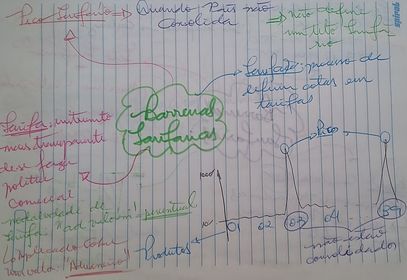 Pico Tarifário → Quando País não
consolida
→ não define
um teto tarifá
rio
Tarifação: processo de
definir cotas em
tarifas
Barreiras
Tarifárias
Tarifa: instrumento
mais transparente
de se fazer
política
comercial
modalidade de
tarifa "ad valorem": percentual
aplicado sobre
um valor
Pico
Produtos
01 02 03 04 05
não estão
consolidados